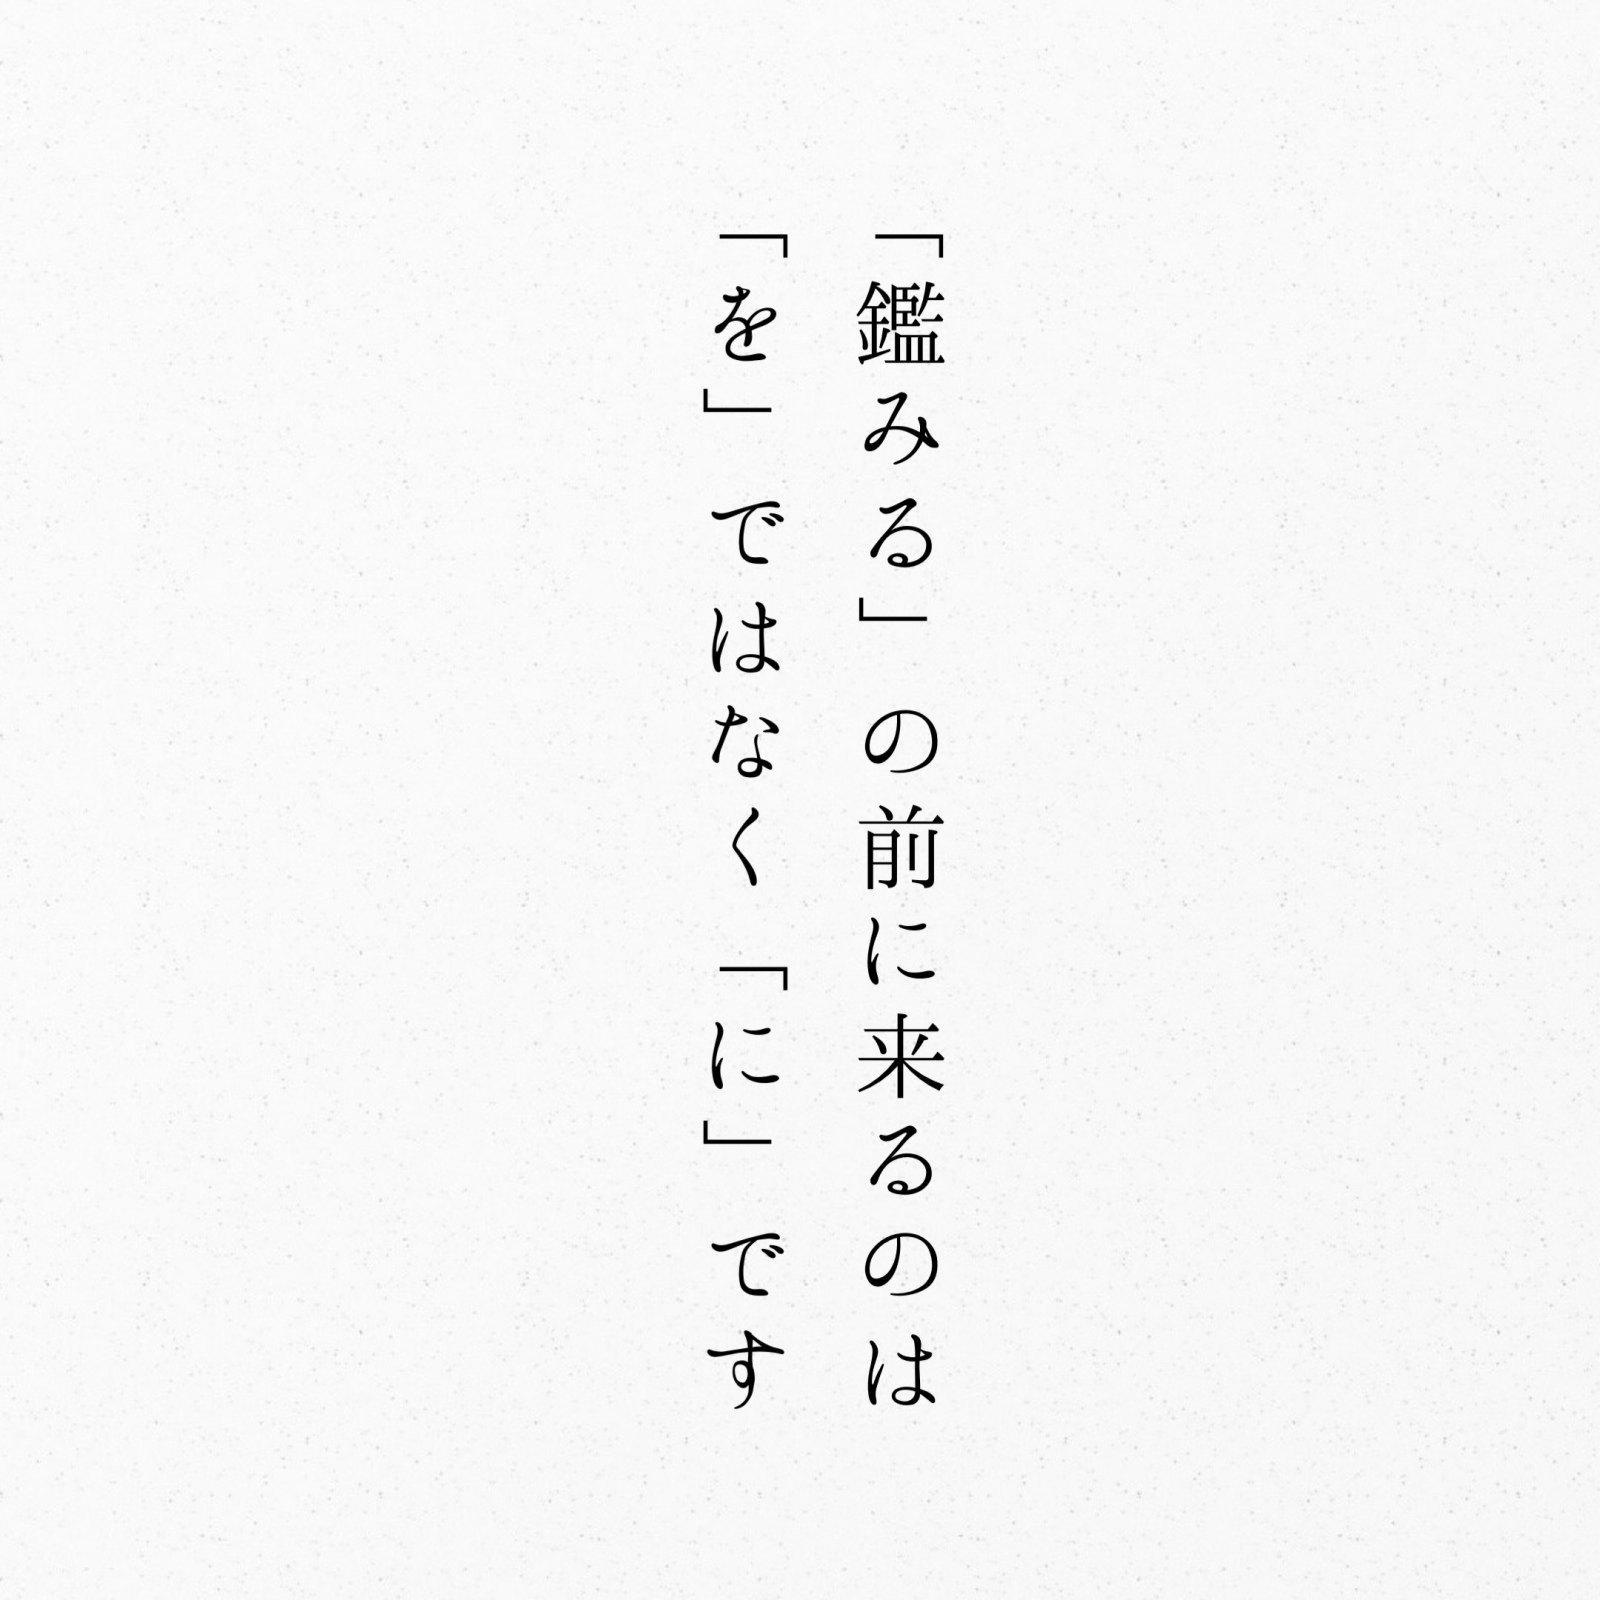 「鑑みる」の前に来るのは
「を」ではなく「に」です